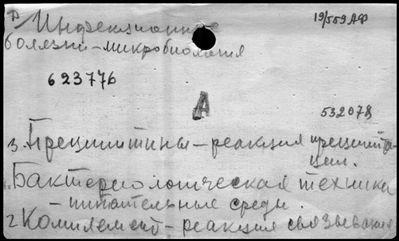 Р Инфекционные 19/559 АФ
болезни - микробиология
623776
А
532078
3. Преципитины - реакция преципита-
ции.
1. Бактериологическая техника
- питательные среды.
2. Комплемент - реакция связывания